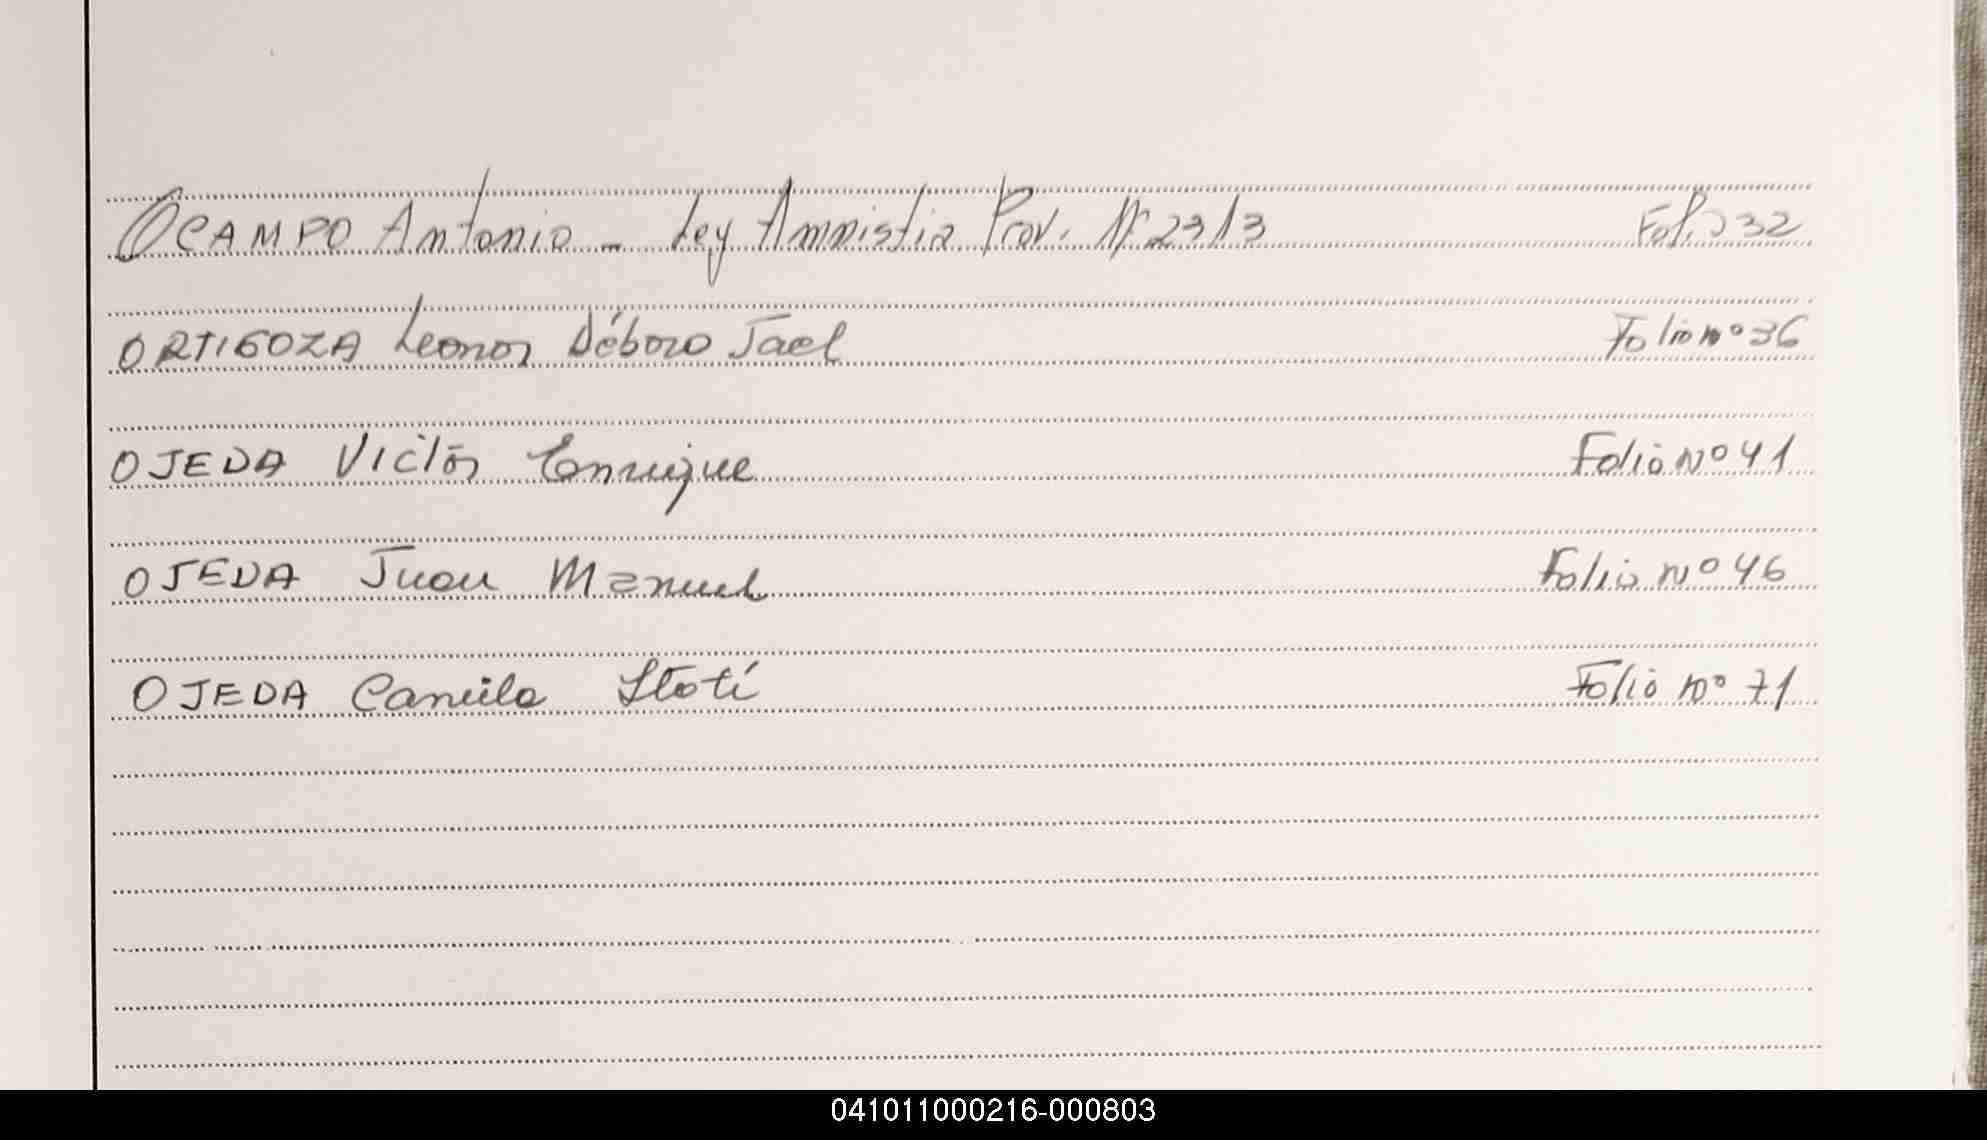 OCAMPO Antonio - Ley Amnistia Prov. Nº 2313 Folio 32
ORTIGOZA Leonor Débora Jael Folio nº 36
OJEDA Victor Enrique Folio Nº 41
OJEDA Juan Manuel Folio Nº 46
OJEDA Camila Itatí Folio Nº 71
041011000216-000803